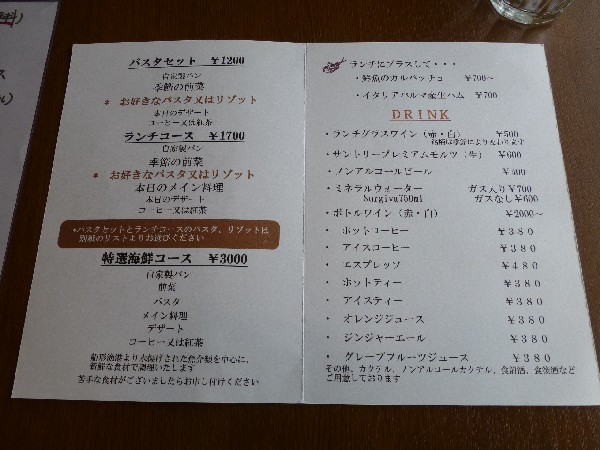 パスタセット　￥1200
自家製パン
季節の前菜
＊ お好きなパスタ又はリゾット
本日のデザート
コーヒー又は紅茶
ランチコース　￥1700
自家製パン
季節の前菜
＊ お好きなパスタ又はリゾット
本日のメイン料理
本日のデザート
コーヒー又は紅茶
*パスタセットとランチコースのパスタ、リゾットは
別紙のリストよりお選びください
特選海鮮コース　￥3000
自家製パン
前菜
パスタ
メイン料理
デザート
コーヒー又は紅茶
船形漁港より水揚げされた魚介類を中心に、
新鮮な食材で調理いたします
苦手な食材がございましたらお申し付けください
ランチにプラスして・・・
・鮮魚のカルパッチョ　￥700～
・イタリアパルマ産生ハム　￥700
DRINK
・ランチグラスワイン（赤・白）　￥500
銘柄は季節によりかわります
・サントリープレミアムモルツ（生）　￥600
・ノンアルコールビール　￥400
・ミネラルウォーター　ガス入り￥700
Surgiva750ml　ガスなし￥600
・ボトルワイン（赤・白）　￥2000～
・ホットコーヒー　￥380
・アイスコーヒー　￥380
・エスプレッソ　￥480
・ホットティー　￥380
・アイスティー　￥380
・オレンジジュース　￥380
・ジンジャーエール　￥380
・グレープフルーツジュース　￥380
その他、カクテル、ノンアルコールカクテル、食前酒、食後酒など
ご用意しております